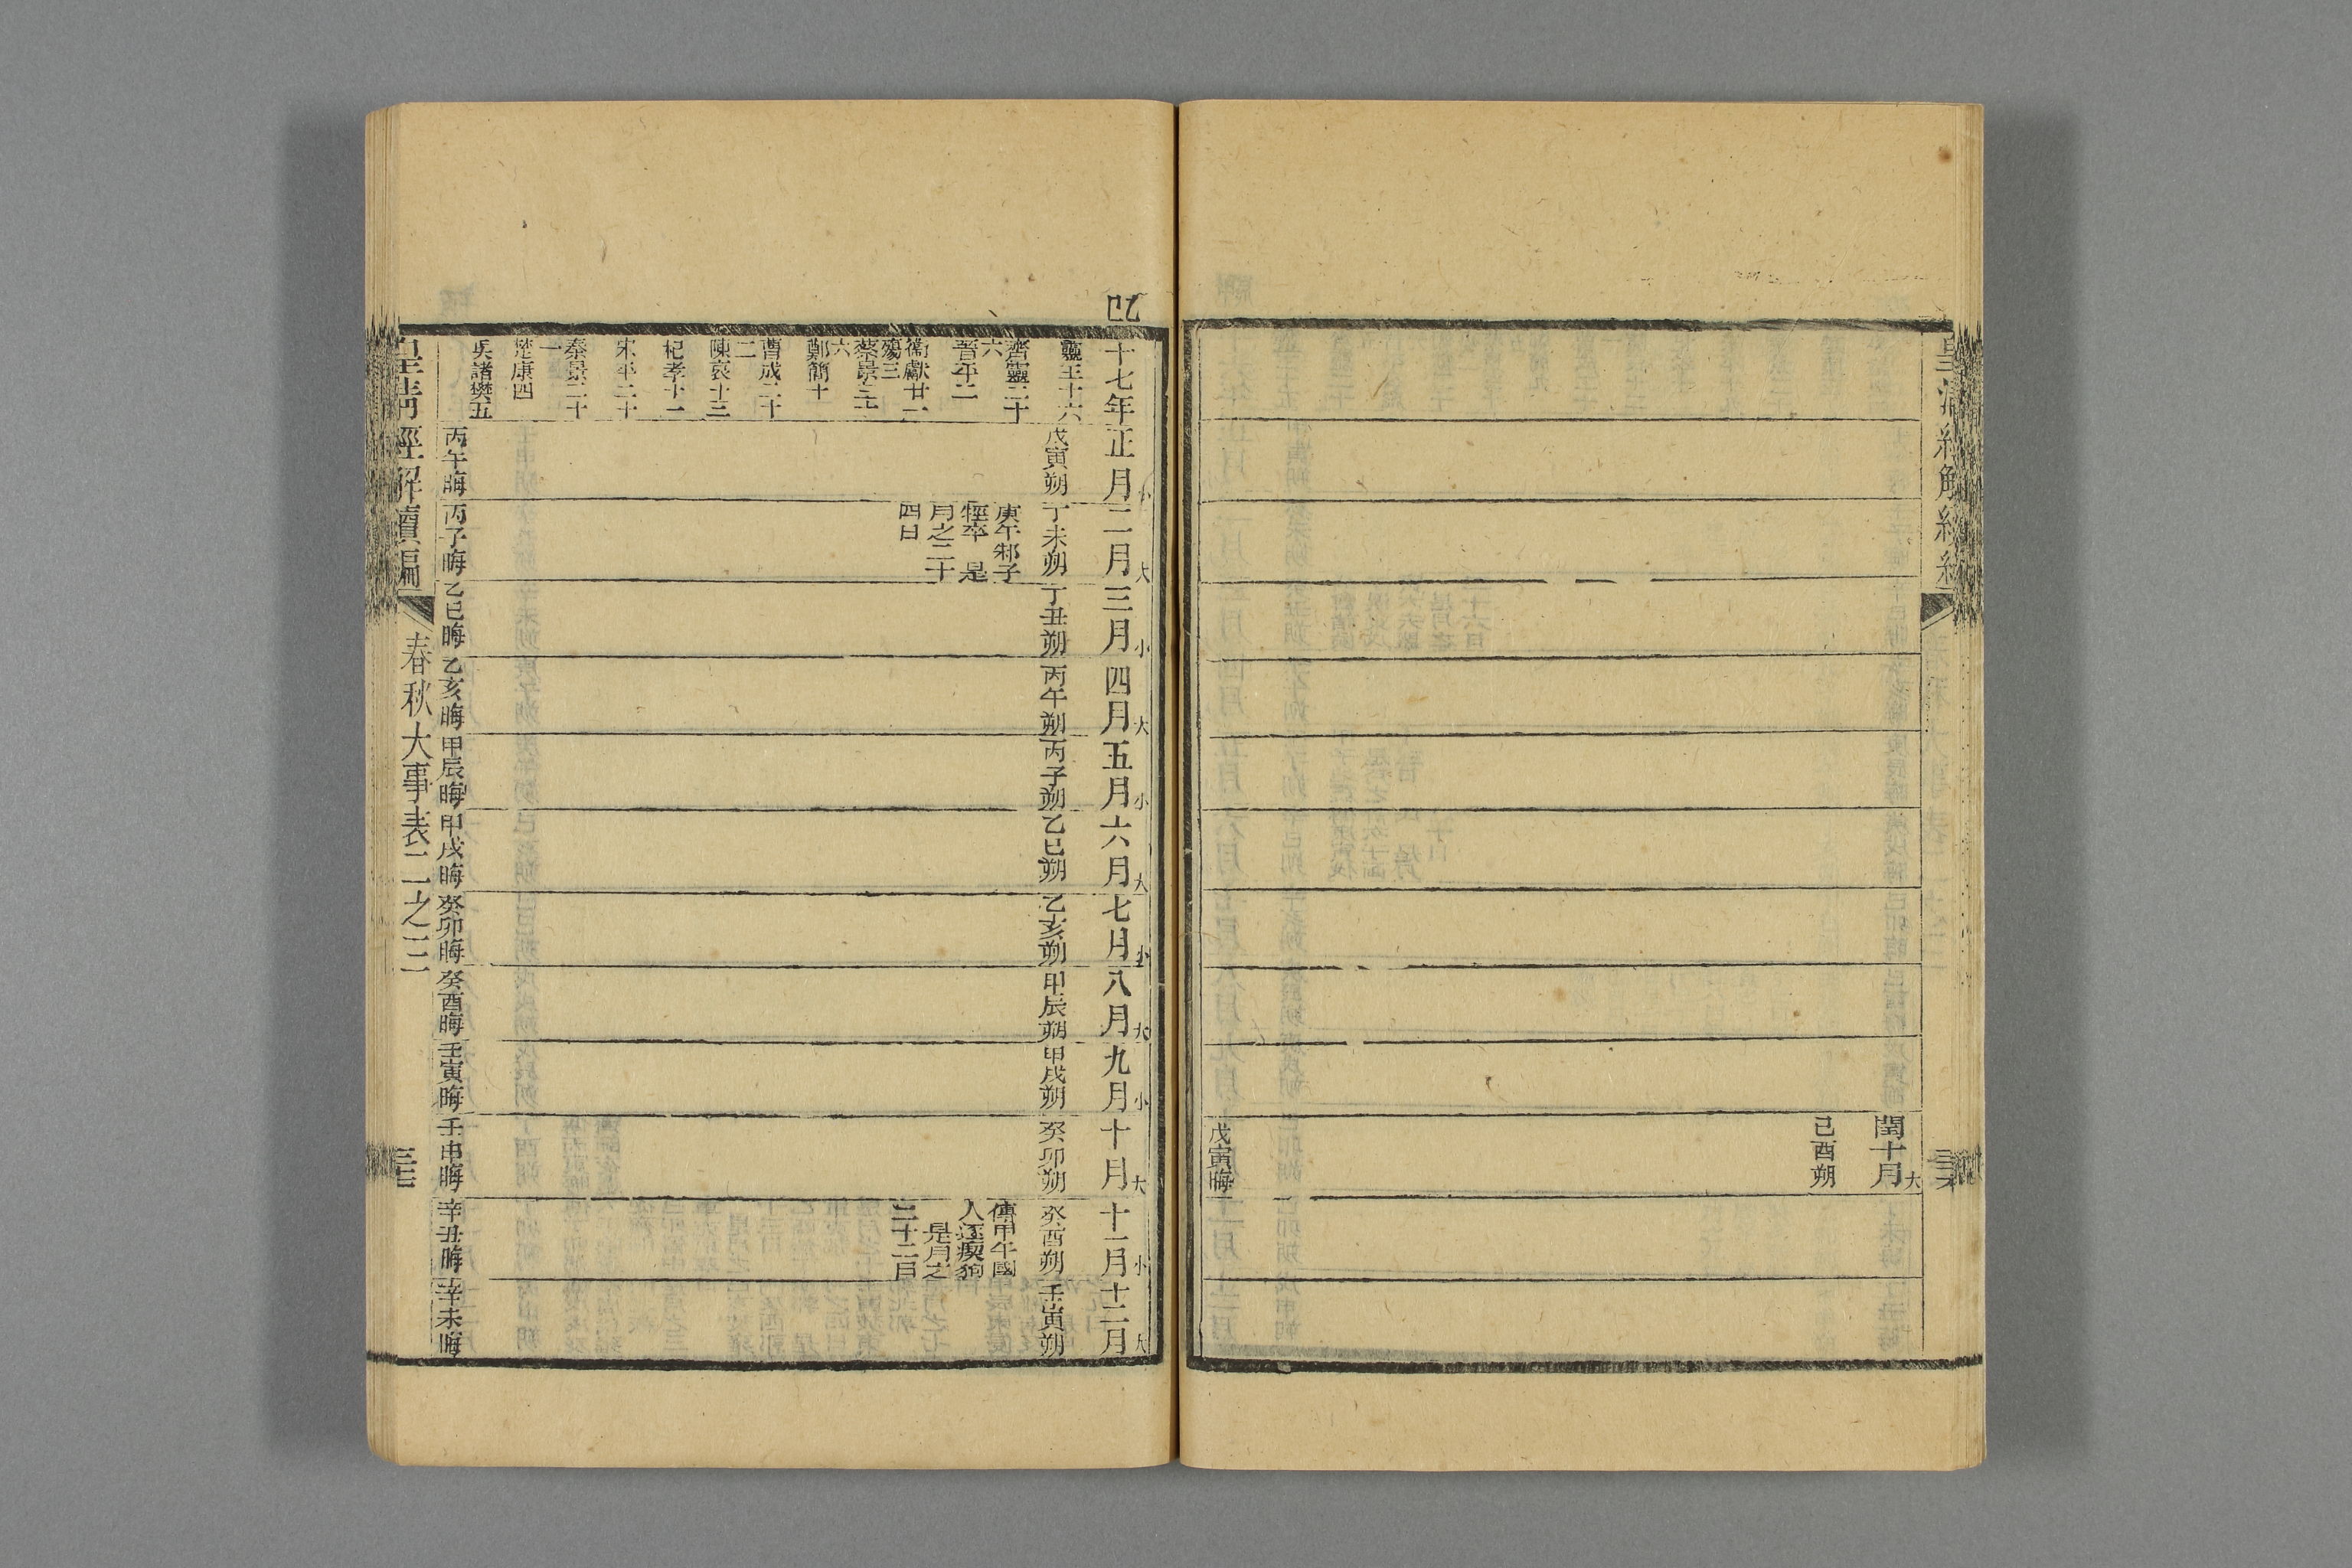 皇清經解續編
閏十月大
己酉朔
戊寅晦
乙巳
十七年
正月小
二月大
三月小
四月大
五月小
六月大
七月小
八月大
九月小
十月大
十一月小
十二月大
靈王十六
齊靈二十六
晉平二
衞獻廿一
殤三
蔡景三十六
鄭簡十
曹成二十二
陳哀十三
杞孝十一
宋平二十
秦景二十一
楚康四
吳諸樊五
戊寅朔
丙午晦
丁未朔
庚午邾子
牼卒 是
月之二十
四日
丙子晦
丁丑朔
乙巳晦
丙午朔
乙亥晦
丙子朔
甲辰晦
乙巳朔
甲戌晦
乙亥朔
癸卯晦
甲辰朔
癸酉晦
甲戌朔
壬寅晦
癸卯朔
壬申晦
癸酉朔
傳甲午國
人逐瘈狗
是月之
二十二日
辛丑晦
壬寅朔
辛未晦
皇清經解續編
春秋大事表二之三
三七